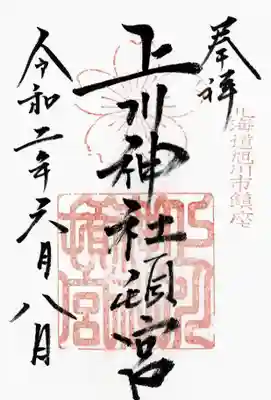 北海道旭川市鎮座
奉拝
上川神社頓宮
令和二年六月八日